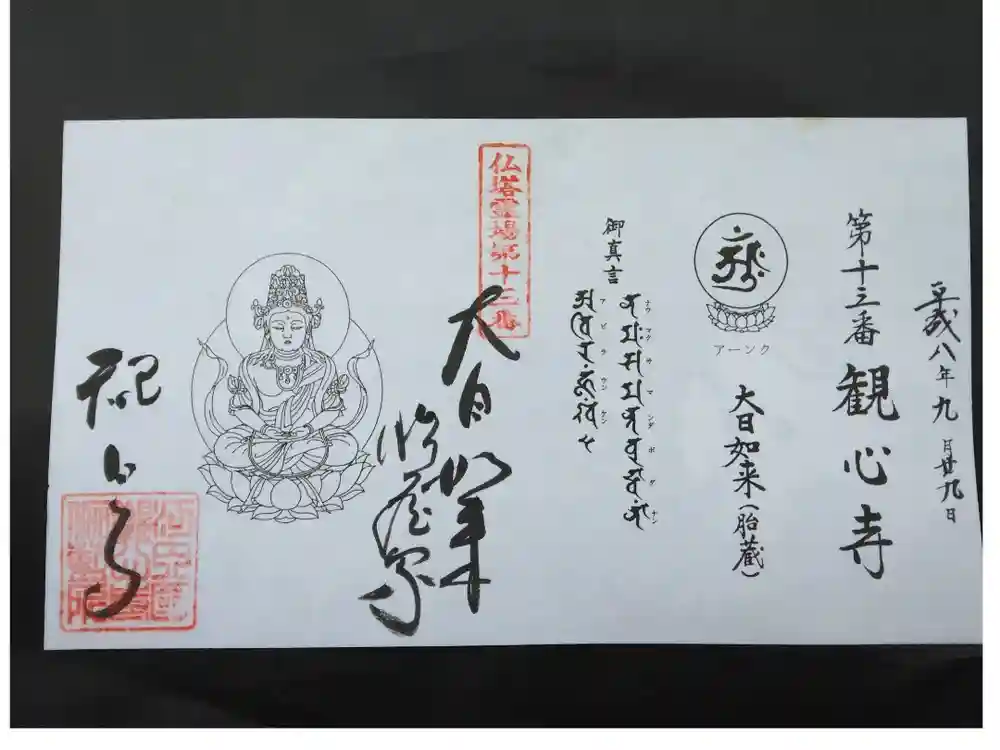 平成八年九月廿九日
第十三番 観心寺
アーンク
大日如来(胎蔵)
御真言
ナウマクサマンダボダナン
アビラウンケン
仏塔霊場第十三番
大日如来
観心寺